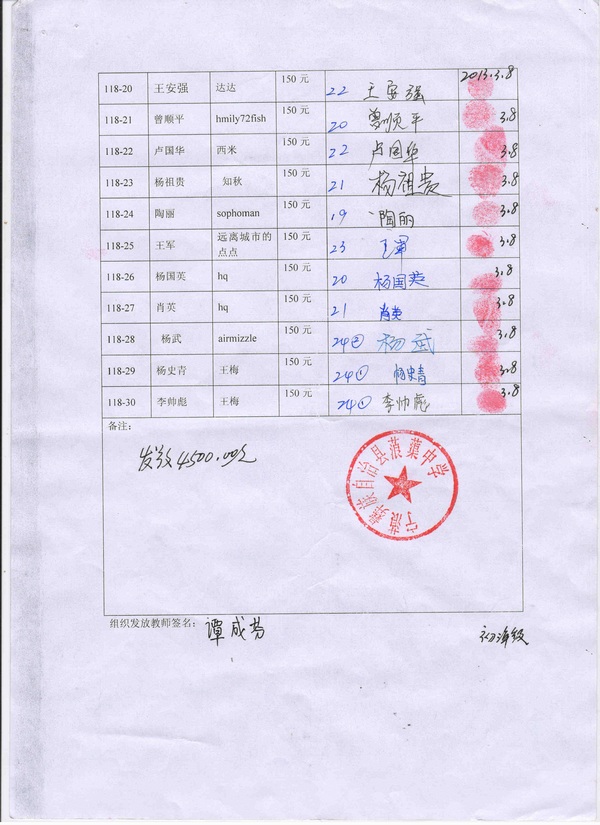 2013.3.8
118-20 王安强 达达 150 元 22 王安强
118-21 曾顺平 hmily72fish 150 元 20 曾顺平 3.8
118-22 卢国华 西米 150 元 22 卢国华 3.8
118-23 杨祖贵 知秋 150 元 21 杨祖贵 3.8
118-24 陶丽 sophoman 150 元 19 陶丽 3.8
118-25 王军 远离城市的 150 元 23 王军 3.8
点点
118-26 杨国英 hq 150 元 20 杨国英 3.8
118-27 肖英 hq 150 元 21 肖英 3.8
118-28 杨武 airmizzle 150 元 24② 杨武 3.8
118-29 杨史青 王梅 150 元 24① 杨史青 3.8
118-30 李帅彪 王梅 150 元 24① 李帅彪 3.8
备注:
发放4500.00元
宁蒗彝族自治县蒗蕖中学
组织发放教师签名: 谭成芬